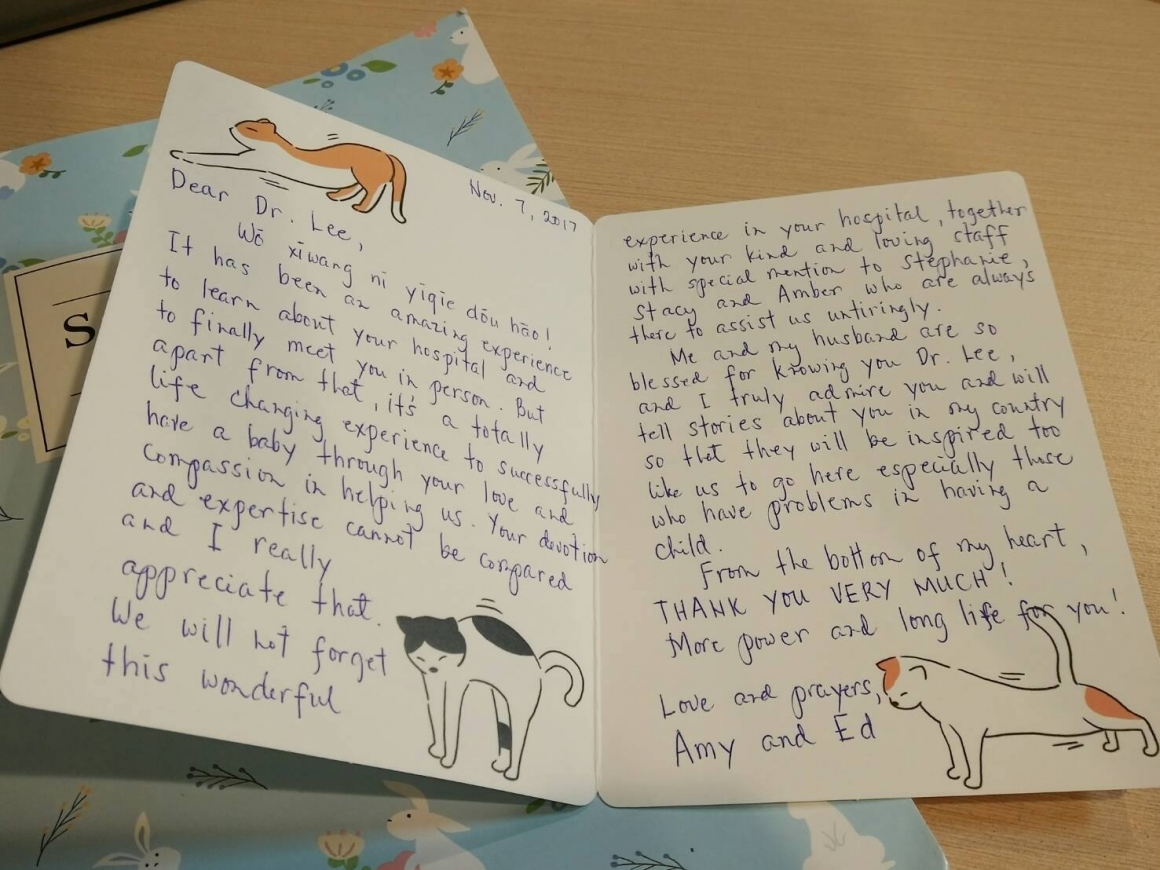 Nov. 7, 2017
Dear Dr. Lee,
Wǒ xīwang nǐ yīqiè dōu hǎo!
It has been an amazing experience
to learn about your hospital and
to finally meet you in person. But
apart from that, it's a totally
life changing experience to successfully
have a baby through your love and
compassion in helping us. Your devotion
and expertise cannot be compared
and I really
appreciate that.
We will not forget
this wonderful
experience in your hospital, together
with your kind and loving staff
with special mention to Stephanie,
Stacy and Amber who are always
there to assist us untiringly.
Me and my husband are so
blessed for knowing you Dr. Lee,
and I truly admire you and will
tell stories about you in my country
so that they will be inspired too
like us to go here especially those
who have problems in having a
child.
From the bottom of my heart,
THANK YOU VERY MUCH!
More power and long life for you!
Love and prayers,
Amy and Ed